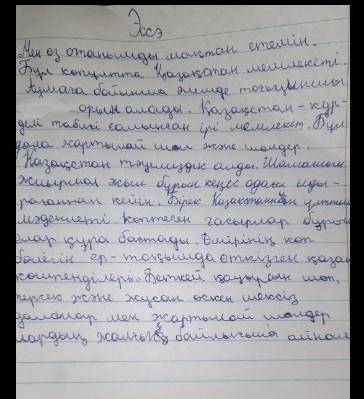 Эссэ
Мен өз отанымды мақтан етемін.
Бұл көпұлтта Қазақстан мемлекеті.
Аумағы бойынша әлемде тоғызыншы
орын алады. Қазақстан - күр-
делі табиғи салынған ірі мемлекет. Бұл
дала жартылай шөл және шөлдер.
Қазақстан тәуелсіздік алды. Шамамен
жиырма жыл бұрын кеңес одағы ыды-
рағаннан кейін. Бірақ Қазақстанның ұлттық
мәдениеті көптеген ғасырлар бұрын
олар құра бастады. Өмірінің көп
бөлігін ер-тоқымда өткізген қазақ
көшпенділері. Беткей қаңырсын шөп,
терсек және жусан өскен шексіз
далалар мен жартылай шөлдер
лардың жалғыз байлығына айнал